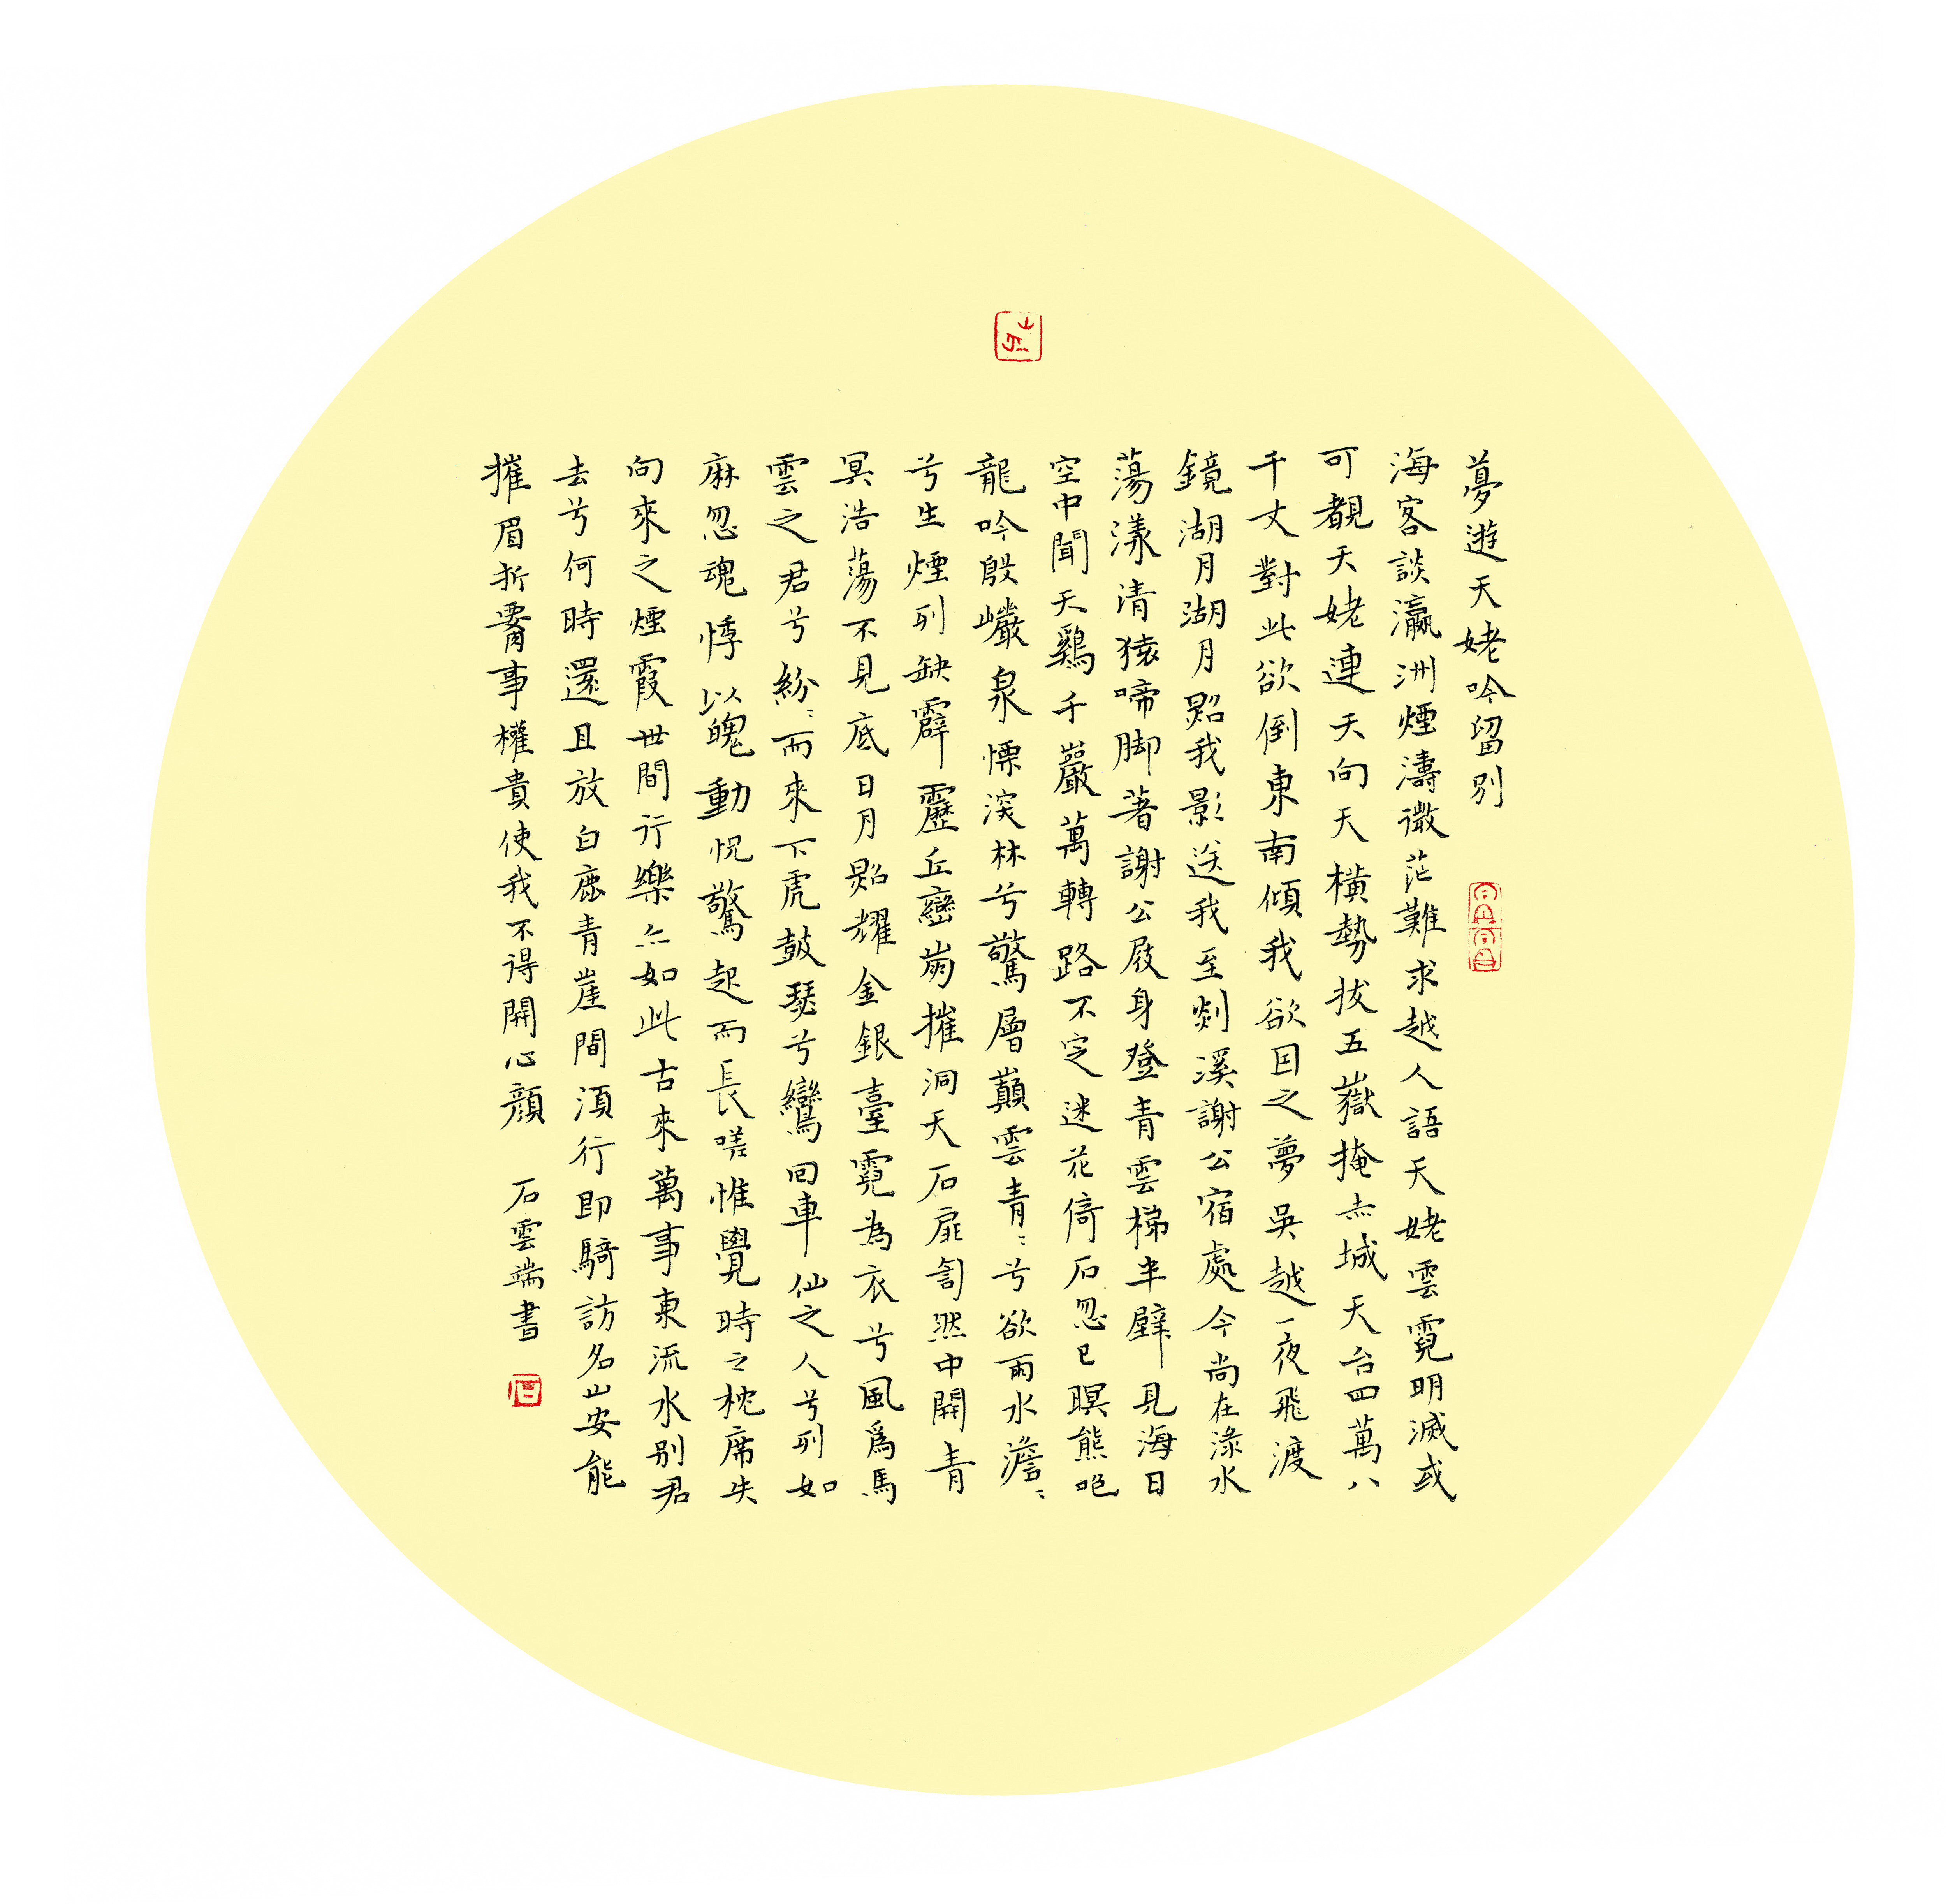 夢遊天姥吟留別
海客談瀛洲煙濤微茫難求越人語天姥雲霓明滅或
可覩天姥連天向天橫勢拔五嶽掩赤城天台四萬八
千丈對此欲倒東南傾我欲因之夢吳越一夜飛渡
鏡湖月湖月照我影送我至剡溪謝公宿處今尚在淥水
蕩漾清猿啼脚著謝公屐身登青雲梯半壁見海日
空中聞天鷄千巖萬轉路不定迷花倚石忽已暝熊咆
龍吟殷巖泉慄深林兮驚層巔雲青〻兮欲雨水澹〻
兮生煙列缺霹靂丘巒崩摧洞天石扉訇然中開青
冥浩蕩不見底日月照耀金銀臺霓為衣兮風爲馬
雲之君兮紛〻而來下虎鼓瑟兮鸞回車仙之人兮列如
麻忽魂悸以魄動怳驚起而長嗟惟覺時之枕席失
向來之煙霞世間行樂亦如此古來萬事東流水別君
去兮何時還且放白鹿青崖間須行即騎訪名山安能
摧眉折腰事權貴使我不得開心顏 石雲端書